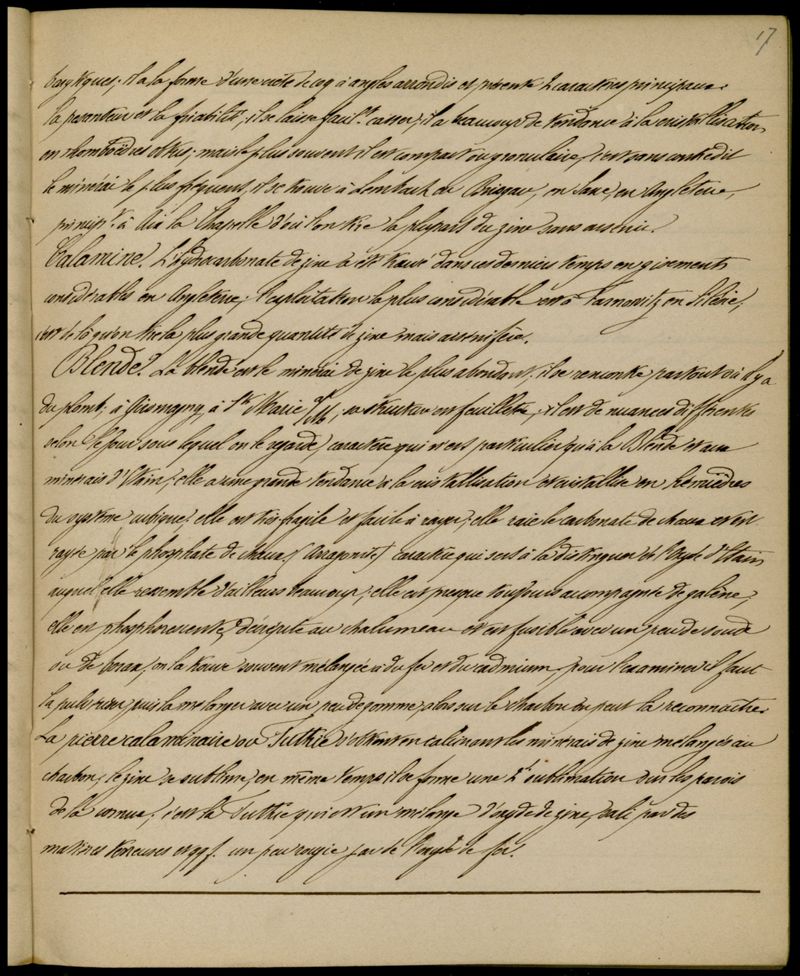 17
barytiques; il a la forme d'une crête de coq à angles arrondis et présente 2 caractères principaux:
la pesanteur et la friabilité, il se laisse facilt casser; il a beaucoup de tendance à la cristallisation
en rhomboèdres obtus; mais le plus souvent il est compact ou granulaire, c'est sans contredit
le minérai le plus fréquent, il se trouve à dans le Brisgau, en Saxe, en Angleterre,
principt à Aix la Chapelle d'où l'on tire la plupart du zinc sans arsenic.
Calamine. L'hydrocarbonate de zinc a été trouvé dans ces derniers temps en gisements
considérables en Angleterre; l'exploitation la plus considérable est à Tarnowitz en Silésie,
c'est de là qu'on tire la plus grande quantité de zinc mais arsenifère.
Blende. La blende est le minérai de zinc le plus abondant, il se rencontre partout où il y a
du plomb, à Giromagny, à Ste Marie a/M, sa structure est feuilletée, il est de nuances différentes
selon le jour sous lequel on le regarde, caractère qui n'est particulier qu'à la Blende et aux
minérais d'Etain; elle a une grande tendance à la cristallisation et cristallise en hémièdres
du système cubique; elle est très fragile et facile à rayer; elle raie le carbonate de chaux et est
rayée par le phosphate de chaux, caractère qui sert à la distinguer de l'oxyde d'Etain
auquel elle ressemble d'ailleurs beaucoup; elle est presque toujours acompagnée de galène;
elle est phosphorescente, décrépite au chalumeau et est fusible avec un peu de soude
ou de borax, on la trouve souvent mélangée à du fer et du cadmium, pour l'examiner il faut
la pulvériser, puis la mélanger avec un peu de gomme, alors sur le charbon on peut la reconnaître.
La pierre calaminaire ou Tuthie s'obtient en calcinant les minérais de zinc mélangés au
charbon; le zinc se sublime, en même temps il se forme une 2e sublimation sur les parois
de la cornue, c'est la Tuthie qui est un mélange d'oxyde de zinc, sali par des
matières terreuses et qqf. un peu rougie par de l'oxyde de fer.